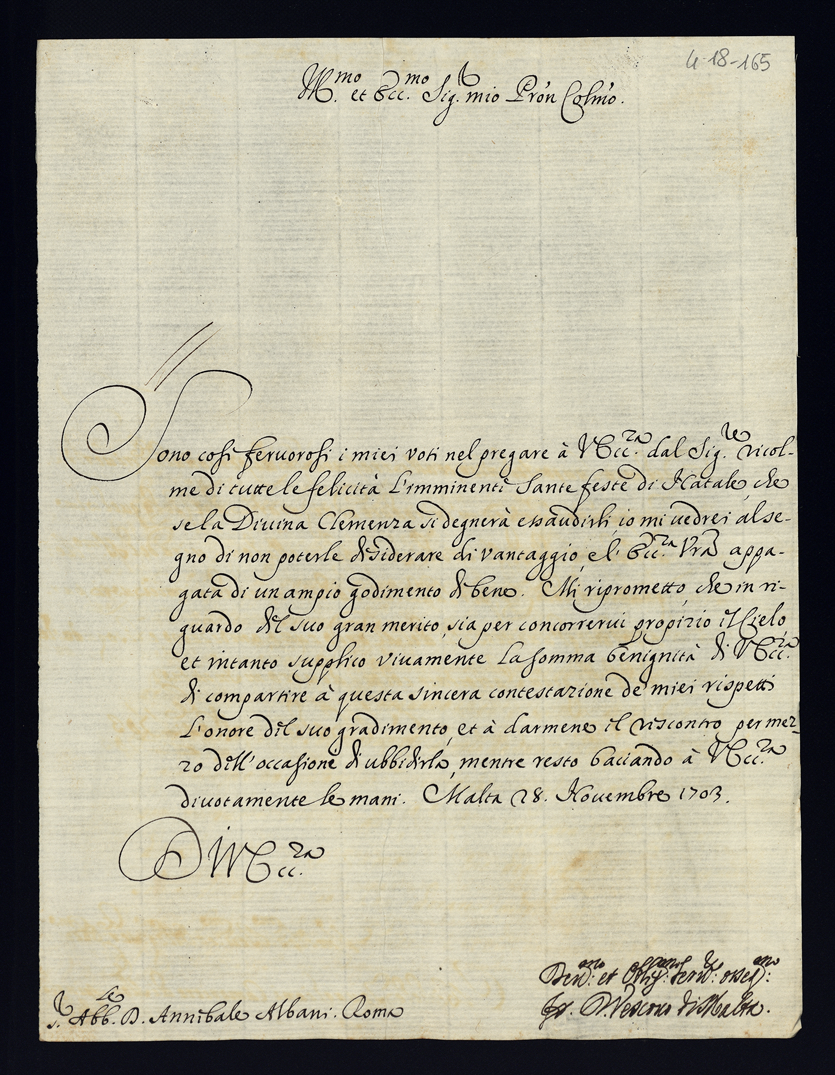 4-18-165
Ill.mo et Ecc.mo Sig.r mio Pron Colmo.
Sono così feruorosi i miei voti nel pregare à V Ecc.za dal Sig.re ricol-
me di tutte le felicità l'imminenti Sante feste di Natale, che
se la Divina Clemenza si degnerà essaudirli, io mi uedrei al se-
gno di non poterle disiderare di vantaggio, e l' Ecc.za Vra appa-
gata di un ampio godimento di bene. Mi riprometto, che in ri-
guardo del suo gran merito, sia per concorrerui propizio il Cielo,
et intanto supplico viuamente la somma benignità di V Ecc.za
di compartire à questa sincera contestazione de miei rispetti
l'onore del suo gradimento, et à darmene il riscontro per mez-
zo dell'occasione di ubbidirla, mentre resto baciando à V Ecc.za
diuotamente le mani. Malta 28. Nouembre 1703.
Di V Ecc.za
Deu.mo et Oblig.mo seru.re osseq.mo
S.r Abb.te D. Annibale Albani. Roma
Vescouo di Malta.